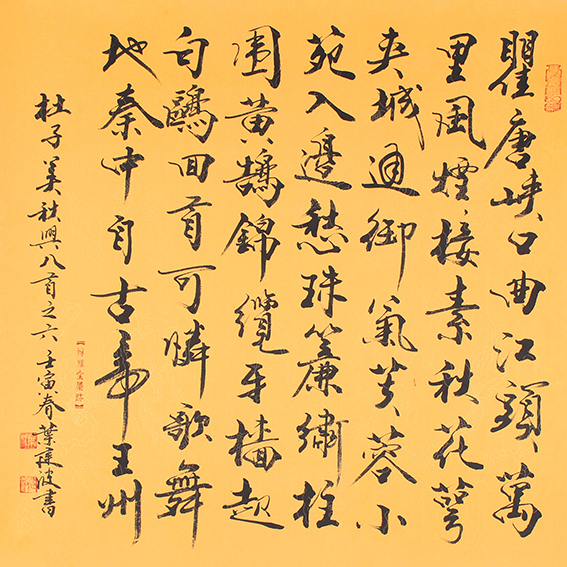 瞿唐峡口曲江頭萬
里風煙接素秋花萼
夹城通御氣芙蓉小
苑入邊愁珠簾繡柱
围黄鵠錦纜牙檣起
白鷗回首可憐歌舞
地秦中自古帝王州
杜子美秋興八首之六 壬寅春葉建波書